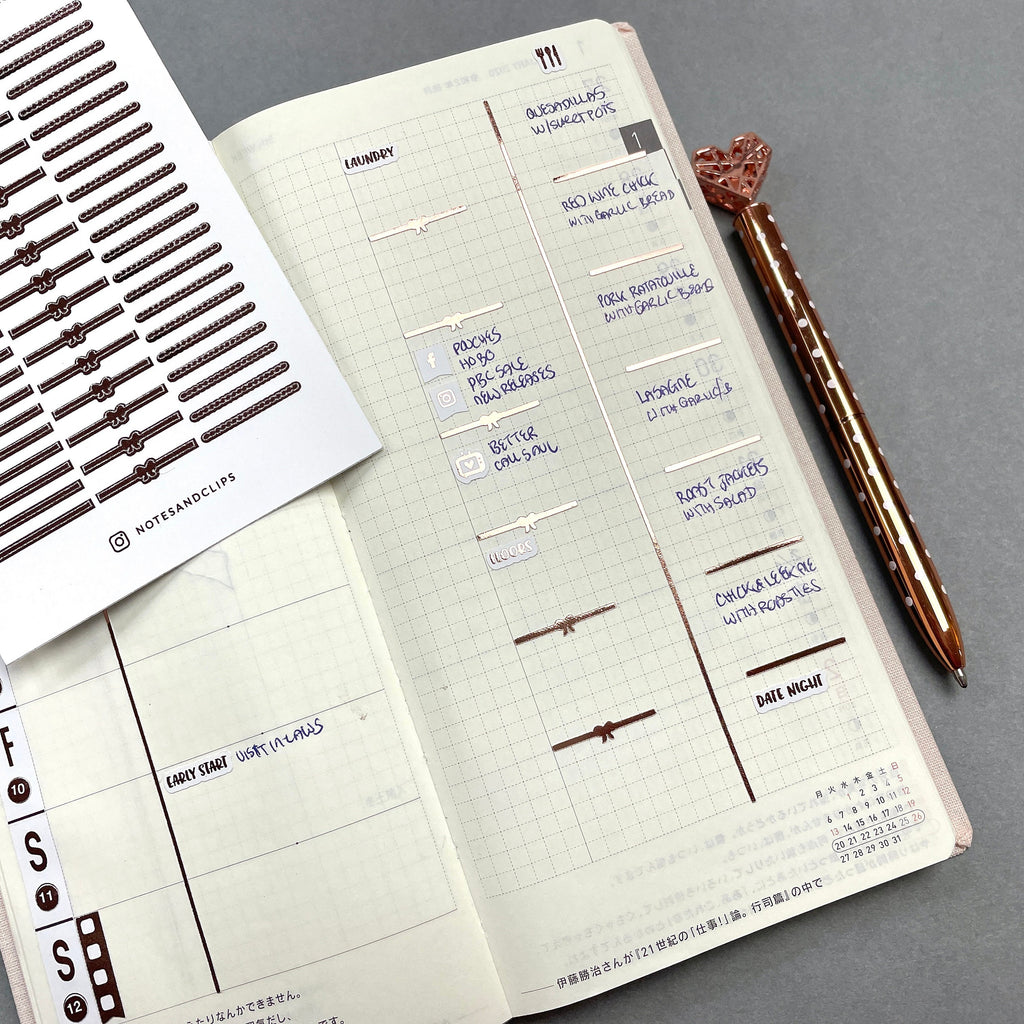 NOTESANDCLIPS
F
10
EARLY START VISIT IN LAWS
S
11
S
12
LAUNDRY
POUCHES
HOBO
PBC SALE
NEW RELEASES
BETTER
CALL SAUL
FLOORS
QUESADILLAS
W/SWEET POTS
1
RED WINE CHICK
WITH GARLIC BREAD
PORK RATATOUILLE
WITH GARLIC BREAD
LASAGNE
WITH GARLIC/B
ROAST JACKETS
WITH SALAD
CHICK & LEEK PIE
WITH ROASTIES
DATE NIGHT
月 火 水 木 金 土 日
1 2 3 4 5
6 7 8 9 10 11 12
13 14 15 16 17 18 19
20 21 22 23 24 25 26
27 28 29 30 31
伊藤勝治さんが『21世紀の「仕事!」論。行司篇』の中で
たりなんかできません。